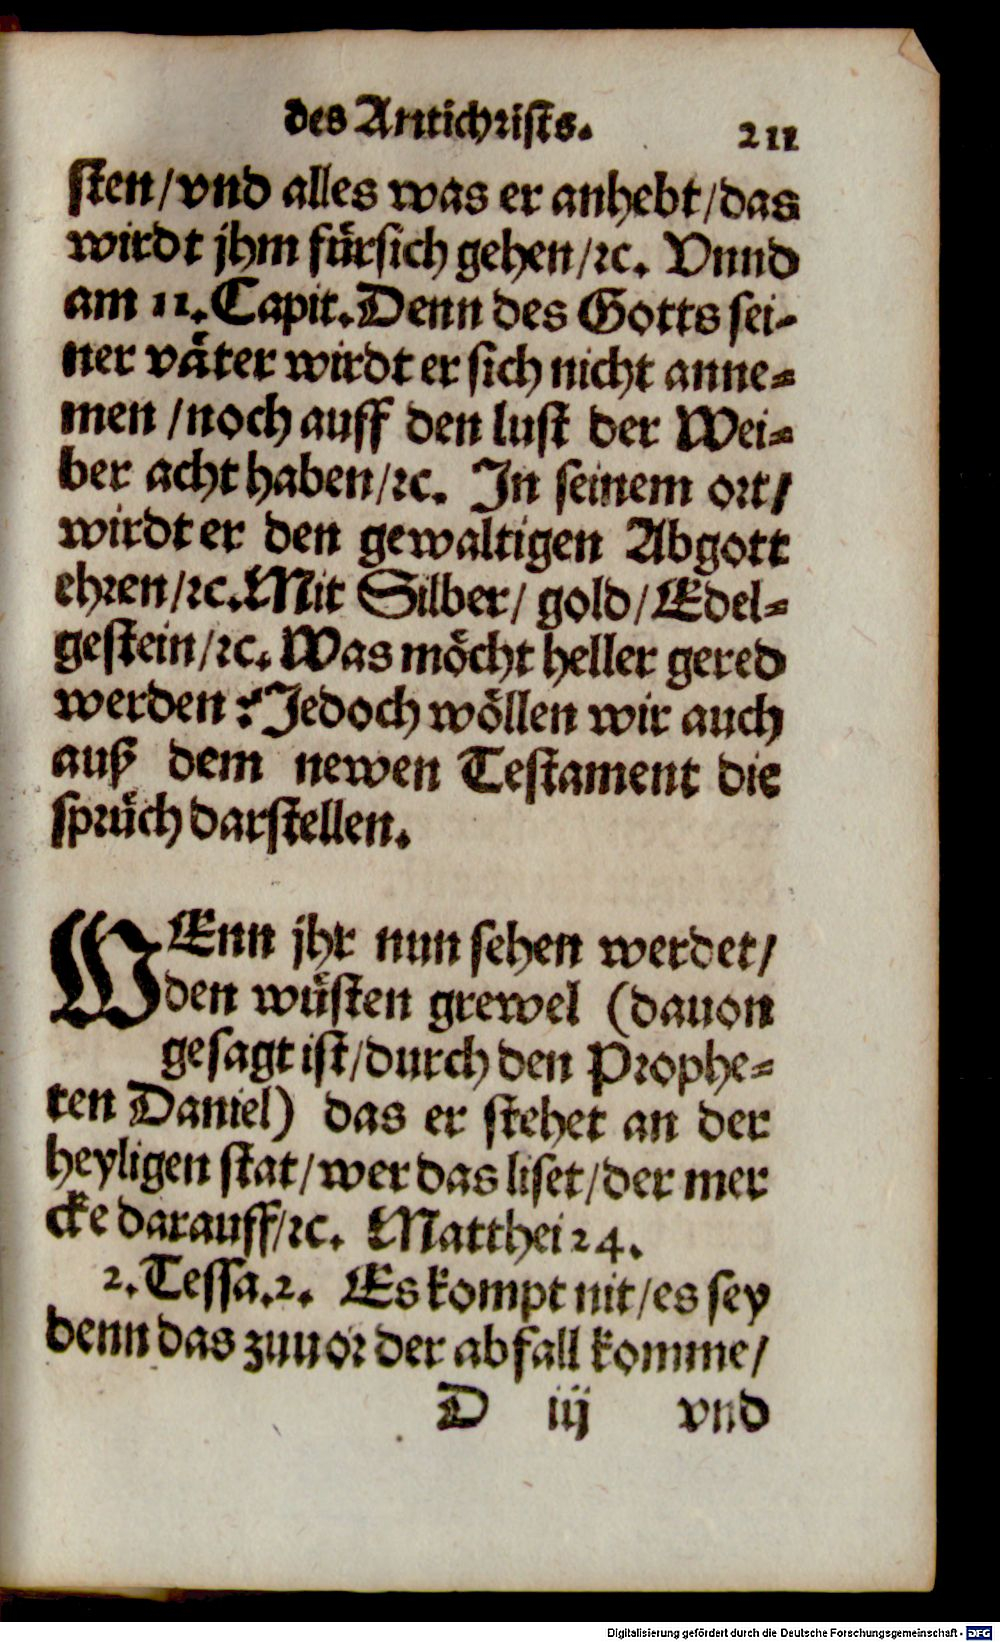 des Antichrists. 211
sten/vnd alles was er anhebt/das
wirdt jhm fürsich gehen/ꝛc. Vnnd
am 11. Capit. Denn des Gotts sei-
ner väter wirdt er sich nicht anne-
men/noch auff den lust der Wei-
ber acht haben/ꝛc. In seinem ort/
wirdt er den gewaltigen Abgott
ehren/ꝛc. Mit Silber/ gold/Edel-
gestein/ꝛc. Was möcht heller gered
werden? Jedoch wöllen wir auch
auß dem newen Testament die
sprüch darstellen.
WEnn jhr nun sehen werdet/
den wüsten grewel (dauon
gesagt ist/durch den Prophe-
ten Daniel) das er stehet an der
heyligen stat/wer das liset/der mer
cke darauff/ꝛc. Matthei 24.
2. Tessa. 2. Es kompt nit/es sey
denn das zuuor der abfall komme/
D iij vnd
Digitalisierung gefördert durch die Deutsche Forschungsgemeinschaft - DFG